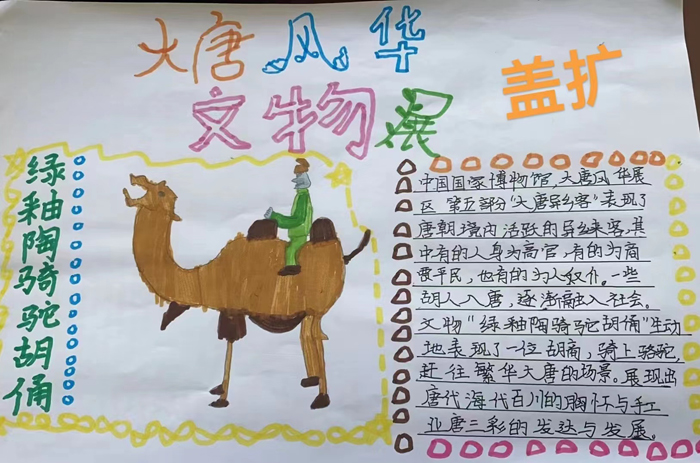 大唐风华
文物展
盖扩
绿釉陶骑驼胡俑
中国国家博物馆,大唐风华展
区第五部分“大唐异乡客”表现了
唐朝境内活跃的异乡来客,其
中有的人身为高官,有的为商
贾平民,也有的为人奴仆。一些
胡人入唐,逐渐融入社会。
文物“绿釉陶骑驼胡俑”生动
地表现了一位胡商,骑上骆驼,
赶往繁华大唐的场景。展现出
唐代海代百川的胸怀与手工
业唐三彩的发达与发展。